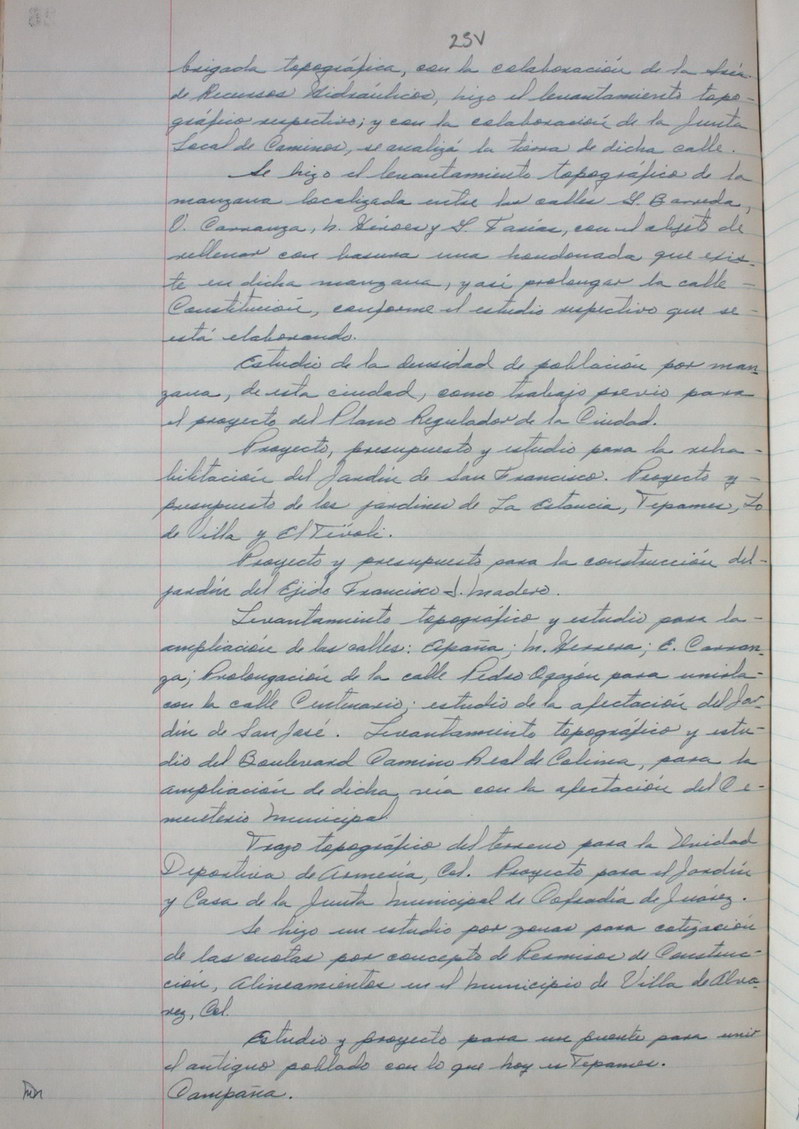 25V
brigada topográfica, con la colaboración de la Sría.
de Recursos Hidráulicos, hizo el levantamiento topo-
gráfico respectivo; y con la colaboración de la Junta
Local de Caminos, se analizó la tierra de dicha calle.
Se hizo el levantamiento topográfico de la
manzana localizada entre las calles G. Barreda,
V. Carranza, N. Héroes y G. Farías, con el objeto de
rellenar con basura una hondonada que exis-
te en dicha manzana, y así prolongar la calle -
Constitución, conforme el estudio respectivo que se -
está elaborando.
Estudio de la densidad de población por man-
zana, de esta ciudad, como trabajo previo para
el proyecto del Plano Regulador de la Ciudad.
Proyecto, presupuesto y estudio para la reha-
bilitación del Jardín de San Francisco. Proyecto y -
presupuesto de los jardines de La Estancia, Tepames, Lo
de Villa y El Tívoli.
Proyecto y presupuesto para la construcción del -
jardín del Ejido Francisco I. Madero.
Levantamiento topográfico y estudio para la -
ampliación de las calles: España; M. Herrera; E. Carran-
za; Prolongación de la calle Pedro Ogazón para unirla -
con la calle Centenario; estudio de la afectación del Jar-
dín de San José. Levantamiento topográfico y estu-
dio del Boulevard Camino Real de Colima, para la
ampliación de dicha vía con la afectación del Ce-
menterio Municipal.
Trazo topográfico del terreno para la Unidad
Deportiva de Armería, Col. Proyecto para el Jardín
y Casa de la Junta Municipal de Cofradía de Juárez.
Se hizo un estudio por zonas para cotización
de las cuotas por concepto de Permisos de Construc-
ción, Alineamientos en el Municipio de Villa de Alva-
rez, Col.
Estudio y proyecto para un puente para unir
el antiguo poblado con lo que hoy es Tepames.
Campaña.